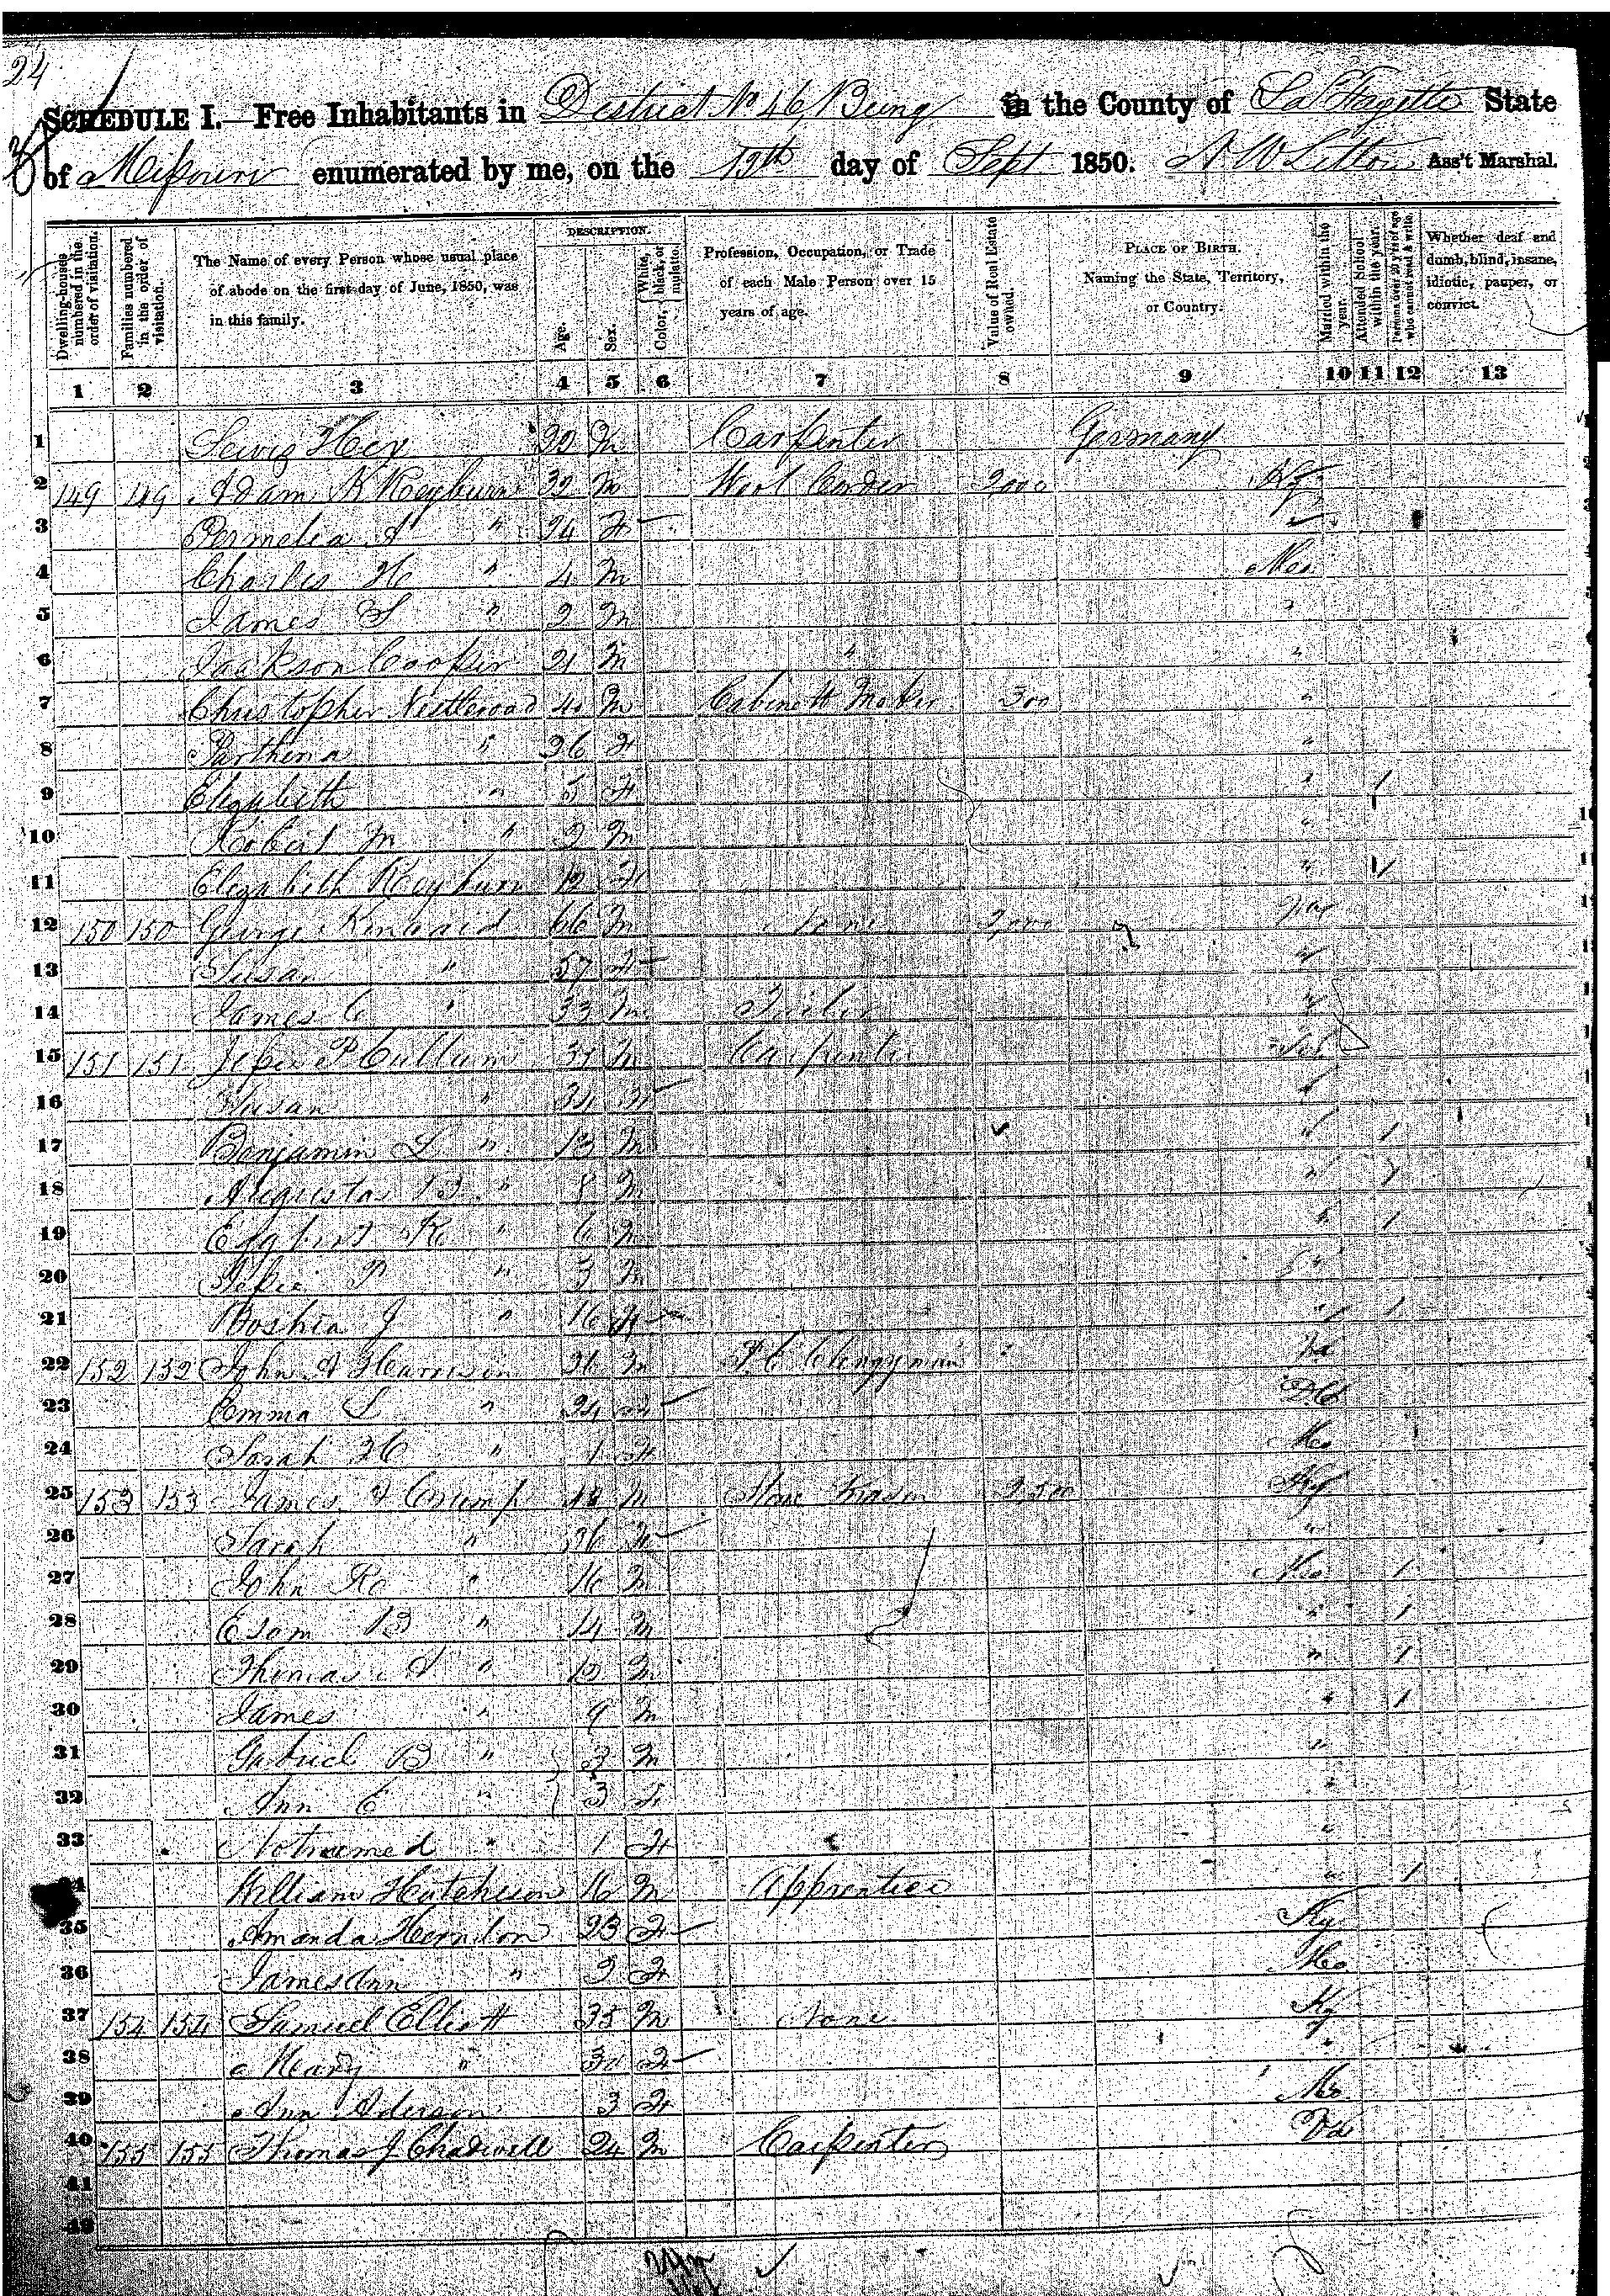 24
SCHEDULE I.—Free Inhabitants in District No 46, Being in the County of La Fayette State
of Missouri enumerated by me, on the 19th day of Sept 1850. A W Litton Ass't Marshal.
Dwelling-houses numbered in the order of visitation.
Families numbered in the order of visitation.
The Name of every Person whose usual place of abode on the first day of June, 1850, was in this family.
DESCRIPTION.
Age.
Sex.
Color, { White, black, or mulatto.
Profession, Occupation, or Trade of each Male Person over 15 years of age.
Value of Real Estate owned.
PLACE OF BIRTH. Naming the State, Territory, or Country.
Married within the year.
Attended School within the year.
Persons over 20 y'rs of age who cannot read & write.
Whether deaf and dumb, blind, insane, idiotic, pauper, or convict.
1 2 3 4 5 6 7 8 9 10 11 12 13
1 Lewis Hex 22 M Carpenter Germany
2 149 149 Adam K Reyburn 32 M Wool Carder 2,000 Ky
3 Permelia A " 24 F
4 Charles H " 4 M Mo
5 James S " 2 M "
6 Jackson Cooper 21 M " "
7 Christopher Nettleroad 40 M Cabinett Maker 300 "
8 Parthena " 26 F "
9 Elizabeth " 5 F " 1
10 Robert M " 2 M "
11 Elizabeth Reyburn 12 F " 1
12 150 150 George Kincaid 66 M None 2,000
13 Susan " 57 F "
14 James C " 33 M "
15 151 151 Jesse P Cullum 37 M Carpenter
16 Susan " 34 F "
17 Benjamin L " 13 M " 1
18 Augustas B " 8 M " 1
19 K " 6 M " 1
20 Jesse P " 3 M "
21 J " 16 F " 1
22 152 152 John A Harrison 26 M Clergyman Va
23 Emma L " 24 F D.C
24 Sarah H " 1 F Mo
25 153 153 James Crump 48 M Stone Mason 2,500 Ky
26 Sarah " 36 F "
27 John R " 16 M Mo 1
28 Esom B " 14 M " 1
29 Thomas A " 12 M " 1
30 James " 9 M " 1
31 Gabriel B " 3 M "
32 Ann E " 3 F "
33 Not named " 1 F "
34 William Hutchison 16 M Apprentice " 1
35 Amanda Herndon 23 F Ky
36 James Ann " 2 F Mo
37 154 154 Samuel Elliott 35 M None Ky
38 Meary " 30 F "
39 Ann Aderson 3 F Mo
40 155 155 Thomas J Chadwell 24 M Carpenter Va
41
42